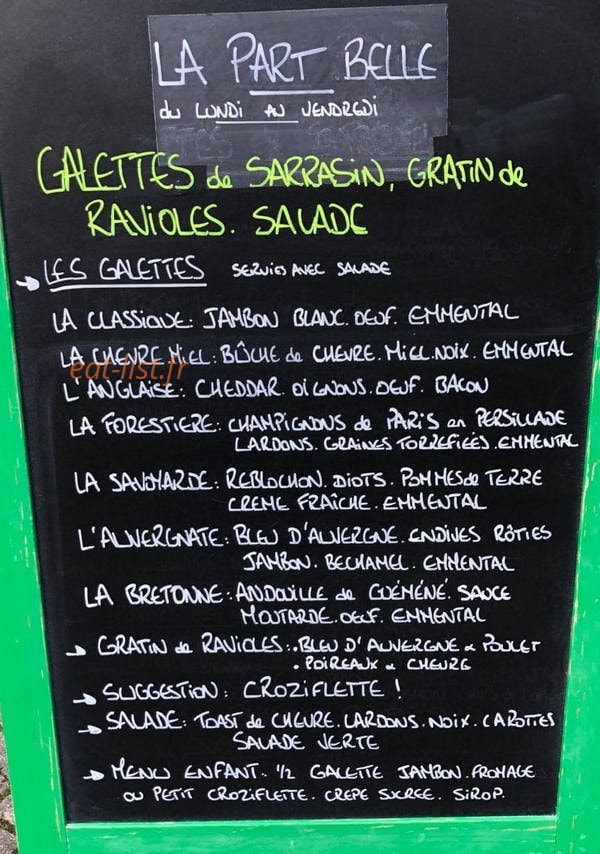 LA PART BELLE
du LUNDI AU VENDREDI
GALETTES de SARRASIN, GRATIN de
RAVIOLES. SALADE
LES GALETTES SERVIES AVEC SALADE
LA CLASSIQUE: JAMBON BLANC. OEUF. EMMENTAL
LA CHEVRE MIEL: BÛCHE de CHEVRE. MIEL. NOIX. EMMENTAL
eat-list.fr
L'ANGLAISE: CHEDDAR. OIGNONS. OEUF. BACON
LA FORESTIERE: CHAMPIGNONS de PARIS en PERSILLADE
LARDONS. GRAINES TORREFIEES. EMMENTAL
LA SAVOYARDE: REBLOCHON. DIOTS. POMMES de TERRE
CREME FRAÎCHE. EMMENTAL
L'AUVERGNATE: BLEU D'AUVERGNE. ENDIVES RÔTIES
JAMBON. BECHAMEL. EMMENTAL
LA BRETONNE: ANDOUILLE de GUÉMÉNÉ. SAUCE
MOUTARDE. OEUF. EMMENTAL
→ GRATIN de RAVIOLES: . BLEU D'AUVERGNE & POULET
. POIREAUX & CHEVRE
→ SUGGESTION: CROZIFLETTE !
→ SALADE: TOAST de CHEVRE. LARDONS. NOIX. CAROTTES
SALADE VERTE
→ MENU ENFANT: 1/2 GALETTE JAMBON. FROMAGE
OU PETIT CROZIFLETTE. CREPE SUCREE. SIROP.